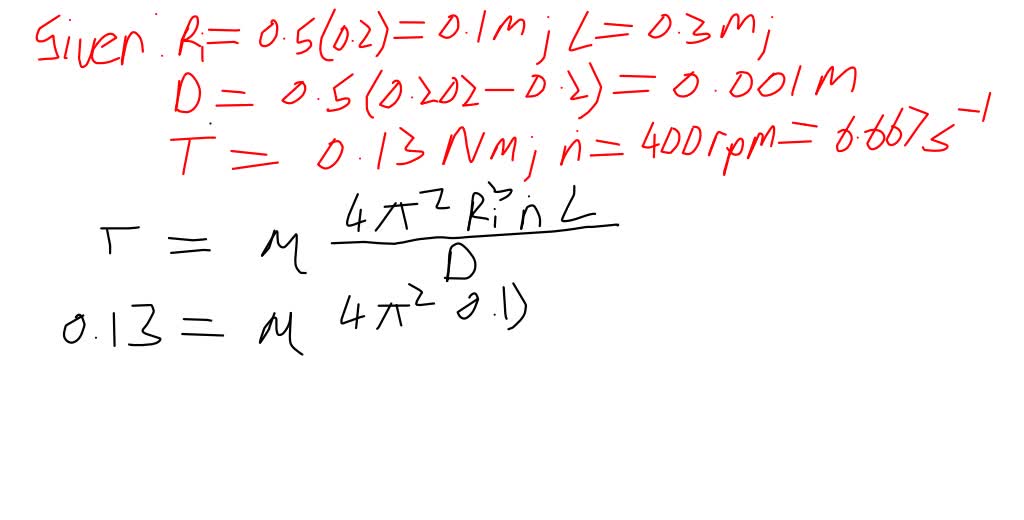 Given: Ri = 0.5(0.2) = 0.1 m; L = 0.3 m;
D = 0.5(0.202 - 0.2) = 0.001 m
T = 0.13 Nm; ṅ = 400 rpm = 6.667 s⁻¹
T = μ 4π² Ri³ ṅ L / D
0.13 = μ 4π² 0.1)